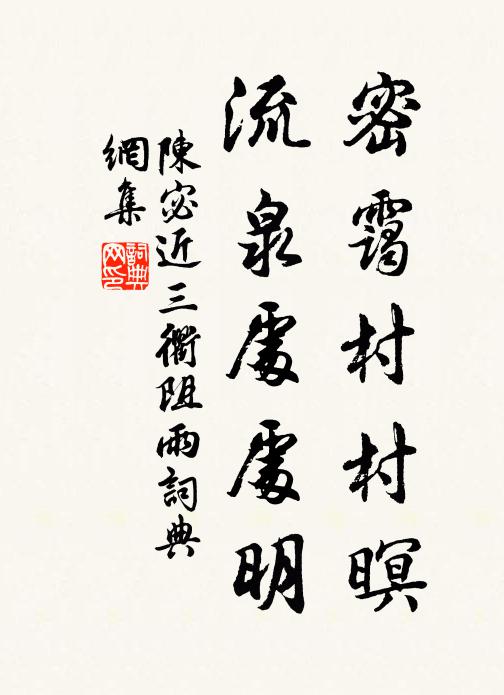 密靄村村暝
流泉處處明
陳宓近三衢阻雨詞典
網集
詞典网印